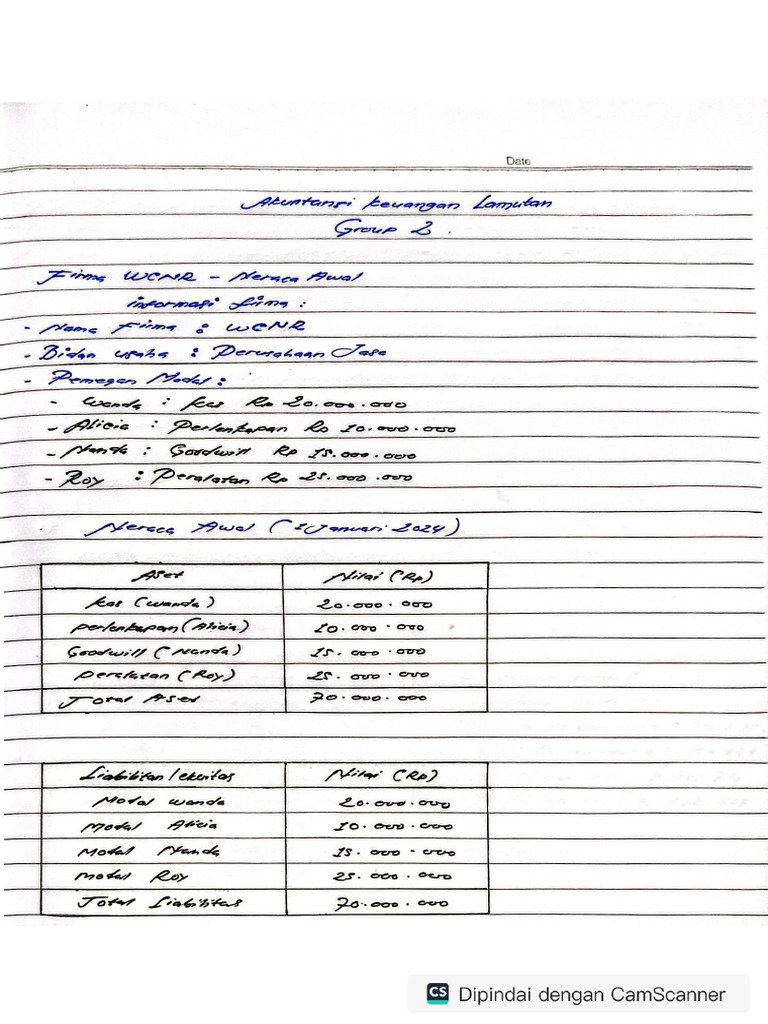 Date
Akuntansi keuangan Lamutan
Group 2.
Firma WCNR - Neraca Awal
informasi firma :
- Nama Firma : WCNR
- Bidan usaha : Perusahaan Jasa
- Pemegan Modal :
- Wanda : kas Rp 20.000.000
- Alicia : Perlenkapan Rp 10.000.000
- Nanda : Goodwill Rp 15.000.000
- Roy : Peralatan Rp 25.000.000
Neraca Awal (1 Januari 2024)
Aset Nilai (Rp)
kas (wanda) 20.000.000
perlenkapan (Alicia) 10.000.000
Goodwill (Nanda) 15.000.000
peralatan (Roy) 25.000.000
Total Aset 70.000.000
Liabilitan/ekuitas Nilai (Rp)
Modal wanda 20.000.000
Modal Alicia 10.000.000
Modal Nanda 15.000.000
modal Roy 25.000.000
Total Liabilitas 70.000.000
CS Dipindai dengan CamScanner